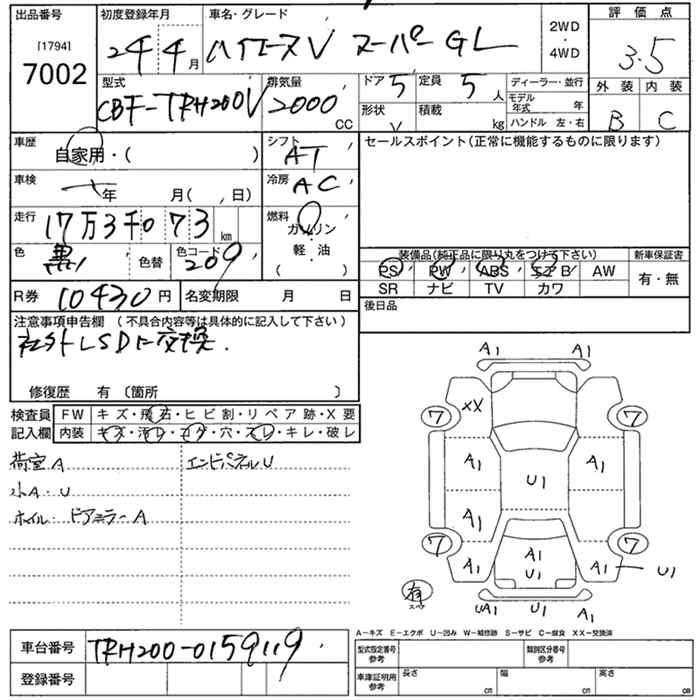 出品番号
[1794]
7002
初度登録年月
24 4月
車名・グレード
ハイエースV スーパーGL
2WD
・
4WD
評価点
3.5
外装 内装
B C
型式
CBF-TRH200V
排気量
2000 CC
ドア 5
定員 5人
形状 V
積載 kg
ディーラー・並行
モデル年式 年
ハンドル 左・右
車歴
自家用・( )
シフト
AT
車検
年 月( , 日)
冷房
AC
走行
17万3千073 km
燃料
ガソリン
・
軽・油
( )
色
黒
色替
色コード
209
R券 10430円
名変期限 月 日
セールスポイント(正常に機能するものに限ります)
装備品(純正品に限り丸をつけて下さい)
PS PW ABS エアB AW
SR ナビ TV カワ
新車保証書
有・無
後日品
注意事項申告欄 (不具合内容等は具体的に記入して下さい)
社外LSDに交換.
修復歴 有 〔箇所 〕
検査員記入欄
FW キズ・飛石・ヒビ割・リペア跡・X要
内装 キズ・汚レ・コゲ・穴・スレ・キレ・破レ
荷室A
小A・U
ホイル・ドアミラーA
エンドパネルU
A1 A1
7 XX 7
A1 U1 A1
A1
7 A1 A1 U1 A1 7 U1
有
スペア
UA1 U1 A1
A-キズ E-エクボ U-凹み W-補修跡 S-サビ C-腐食 XX-交換済
車台番号 TRH200-0159119
登録番号
型式指定番号
参考
類別区分番号
参考
車庫証明用
参考
長さ cm
幅 cm
高さ cm